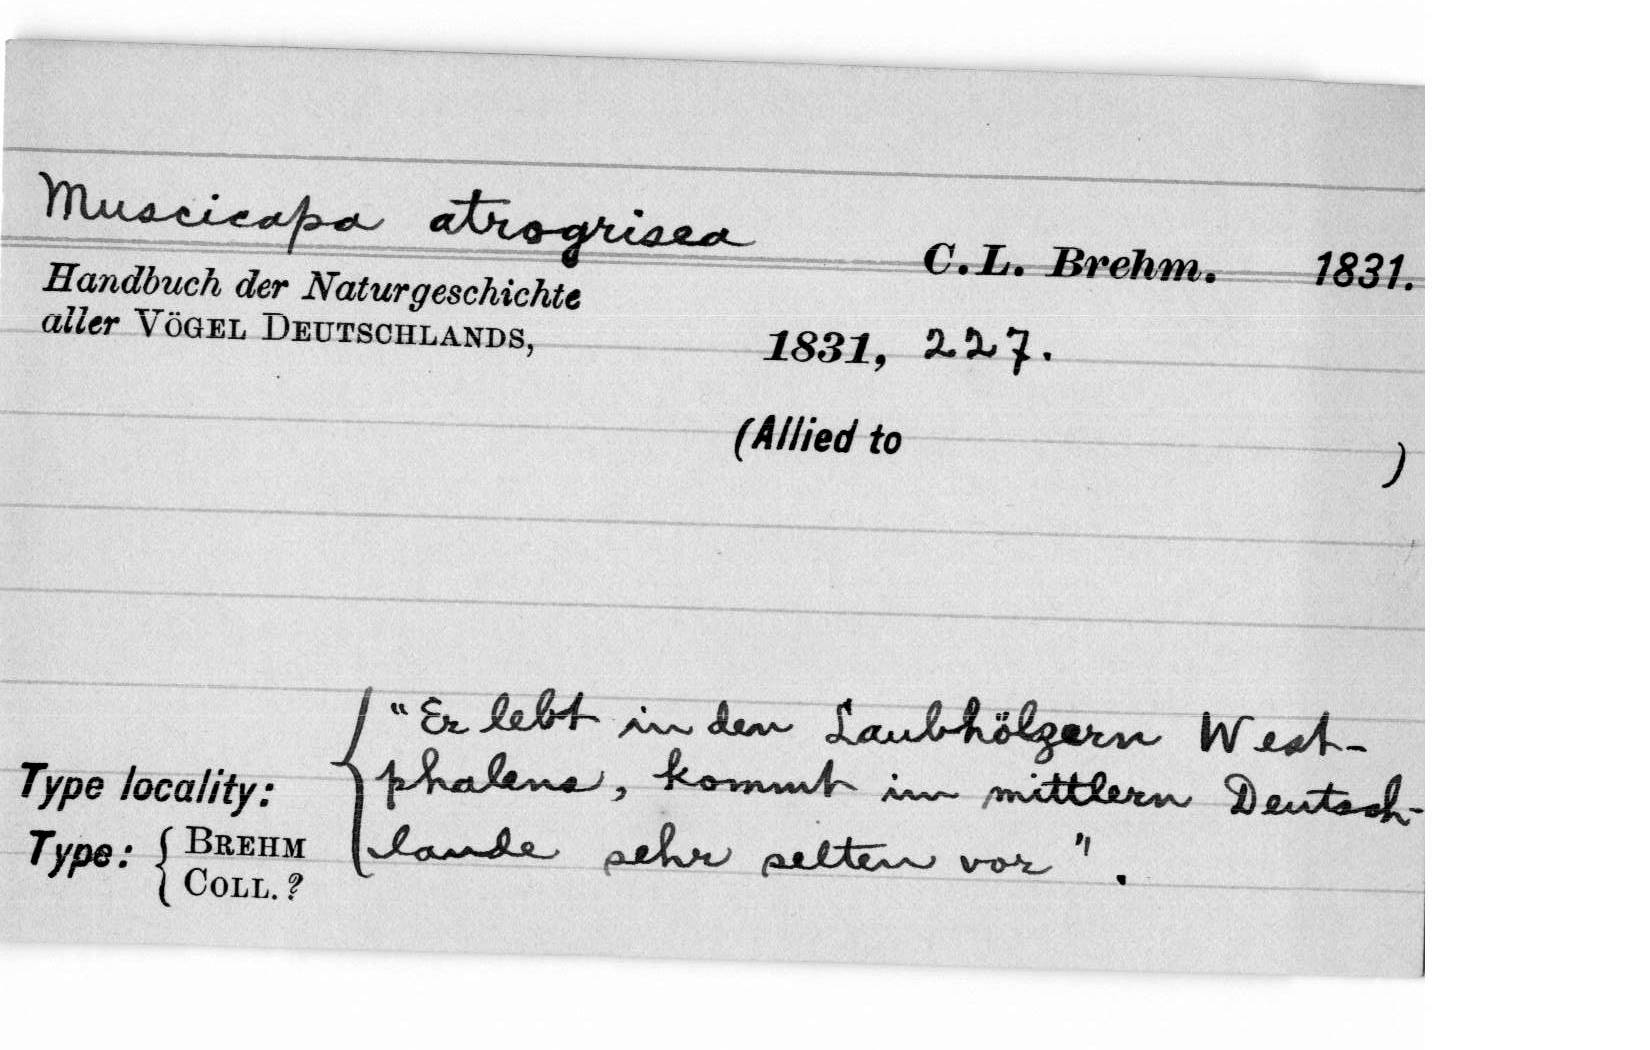 Muscicapa atrogrisea C. L. Brehm. 1831.
Handbuch der Naturgeschichte
aller VÖGEL DEUTSCHLANDS, 1831, 227.
(Allied to )
"Er lebt in den Laubhölzern West-
Type locality: phalens, kommt im mittlern Deutsch-
Type: BREHM lande sehr selten vor".
COLL. ?